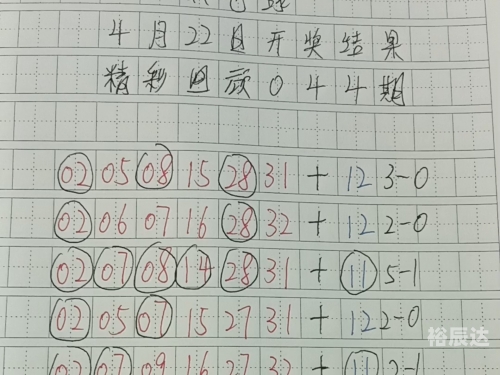 4月22日开奖结果
精彩回顾044期
02 05 08 15 28 31 + 12 3-0
02 06 07 16 28 32 + 12 2-0
02 07 08 14 28 31 + 11 5-1
02 05 07 15 27 31 + 12 2-0
02 07 09 16 27 32 + 11 2-1
裕辰达